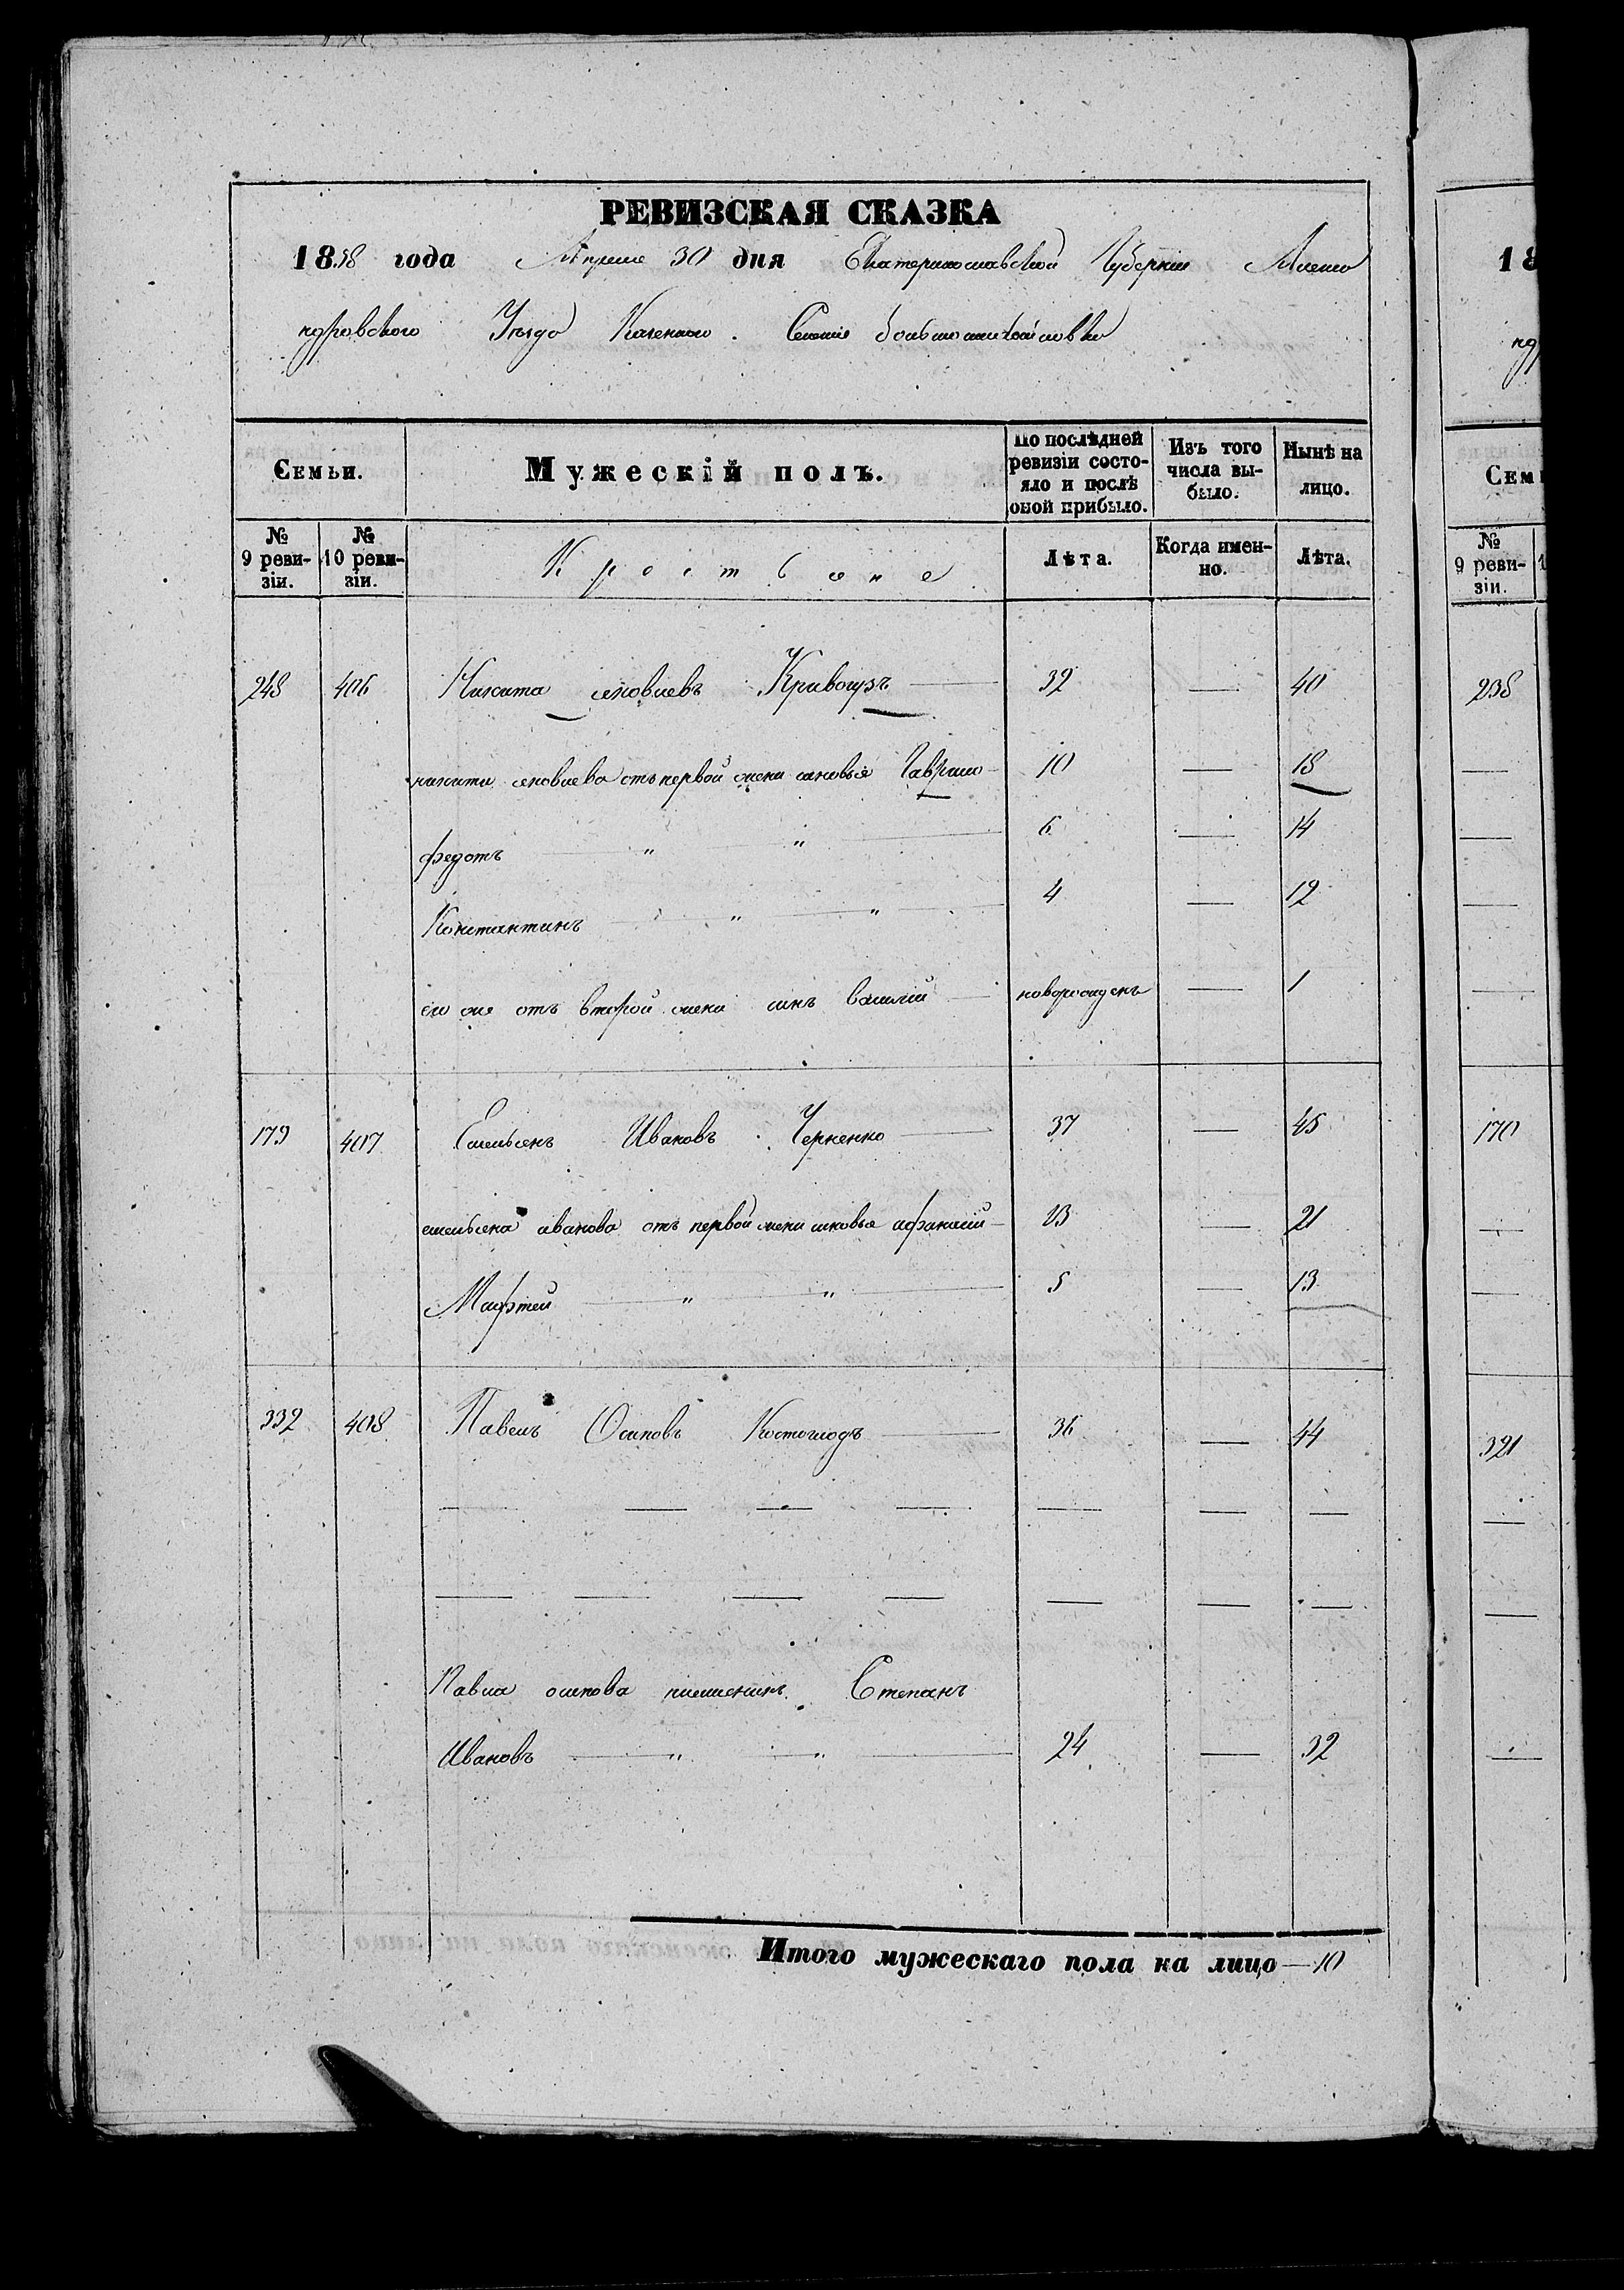 РЕВИЗСКАЯ СКАЗКА
1858 года Апреля 30 дня Екатеринославской Губерніи Алекса
ндровского Уезда Казенного Селенія большомихайловки
Семьи.
Мужескій полъ.
По послѣдней ревизіи состояло и послѣ оной прибыло.
Изъ того числа выбыло.
Нынѣ на лицо.
№ 9 ревизіи.
№ 10 ревизіи.
Крестьяне
Лѣта.
Когда именно.
Лѣта.
248 406 Никита яковлевъ Кривогузъ 32 — 40
никити яковлева отъ первой жени сыновья Гаврило 10 — 18
федотъ " " 6 — 14
Константинъ " " 4 — 12
его же отъ второй жени синъ василій новорожденъ — 1
179 407 Емельянъ Ивановъ Черненко 37 — 45
емельяна иванова отъ первой жени сыновья афанасій 13 — 21
Мафтей " " 5 — 13
332 408 Павелъ Осиповъ Костоглодъ 36 — 44
— — — — — — —
— — — — — — —
Павла осипова племяникъ Степанъ
Ивановъ " " 24 — 32
Итого мужескаго пола на лицо — 10
18
нд
Семь
№ 9 ревизіи.
1
238
—
—
—
—
170
—
—
321
—
—
—